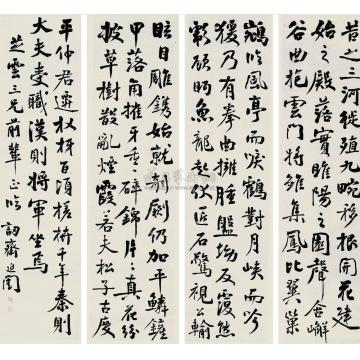 昔之三河徙殖九畹移根開花建
始之殿落實睢陽之園聲含嶰
谷曲抱雲門將雛集鳳比翼巢
鵷臨風亭而唳鶴對月峽而吟
猨乃有拳曲擁腫盤坳反覆熊
彪顧眄魚龍起伏匠石驚視公輸
眩目雕鐫始就剞劂仍加平鱗鏟
甲落角摧牙重重碎錦片片真花紛
披草樹散亂煙霞若夫松子古度
平仲君遷百頃槎枿千年秦則
大夫受職漢則將軍坐焉
芝雲三兄前輩正 訒齋